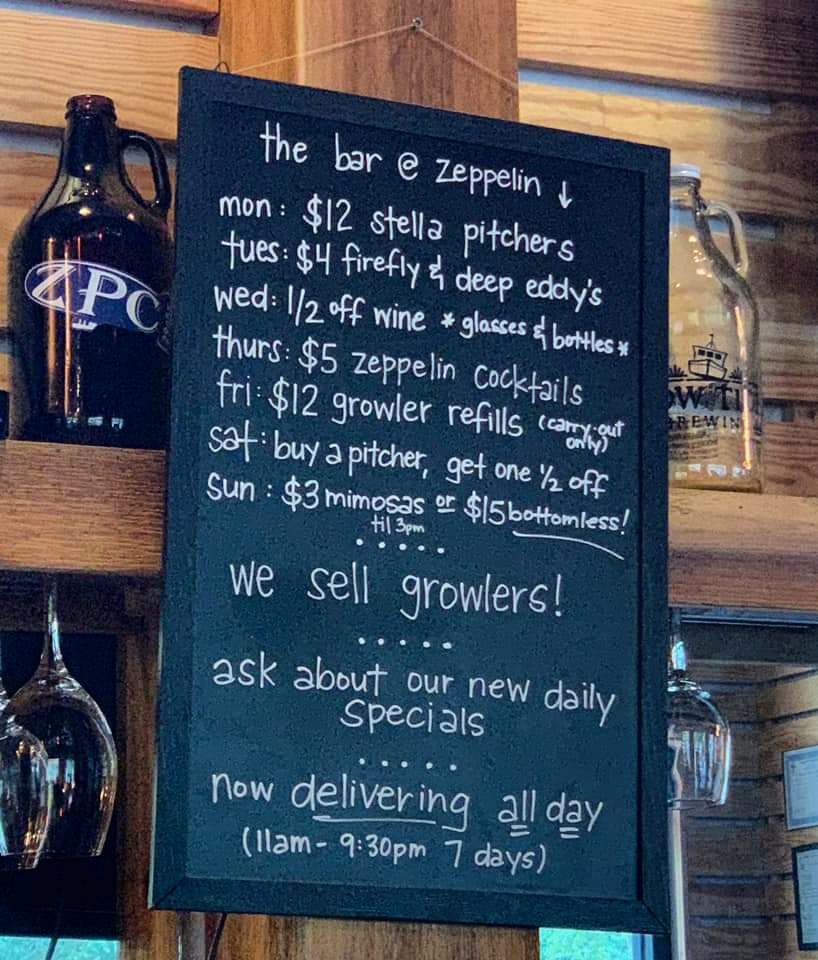 the bar @ zeppelin ↓
mon: $12 stella pitchers
tues: $4 firefly & deep eddy's
wed: 1/2 off wine *glasses & bottles*
thurs: $5 zeppelin cocktails
fri: $12 growler refills (carry-out only)
sat: buy a pitcher, get one 1/2 off
sun: $3 mimosas or $15 bottomless!
til 3pm
.....
we sell growlers!
.....
ask about our new daily
specials
.....
now delivering all day
(11am - 9:30pm 7 days)
ZPC